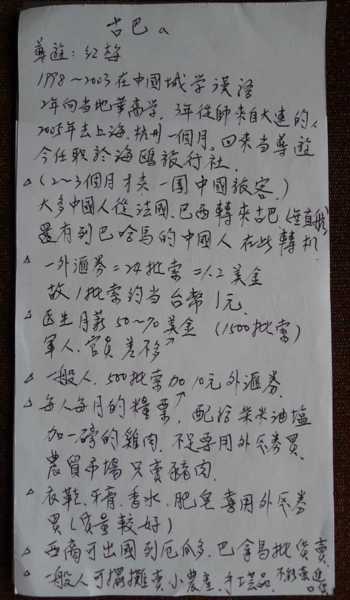 古巴 a
導遊: 紅梅
1998~2003 在中國城学漢語
2年向当地華裔学, 3年從師來自大連的,
2005年去上海.杭州一個月. 回來当導遊
今任職於海鷗旅行社.
△ (2~3個月才來一团中國旅客.)
大多中國人從法國.巴西轉來古巴 (無直航)
還有到巴哈馬的中國人在此轉机
△ 一外滙券=24批索=1.2美金
故1批索約当台幣1元.
△ 医生月薪50~70美金 (1500批索)
軍人.官員差不多
△ 一般人. 500批索加10元外滙券.
△ 每人每月的糧票, 配给柴米油塩
加一磅的雞肉. 不足要用外匯券買.
農貿市場只賣豬肉.
△ 衣鞋.牙膏.香水.肥皂要用外匯券
買 (質量較好)
△ 西商可出國到厄瓜多.巴拿馬批貨賣.
△ 一般人可擺攤賣小農產.手工艺品.